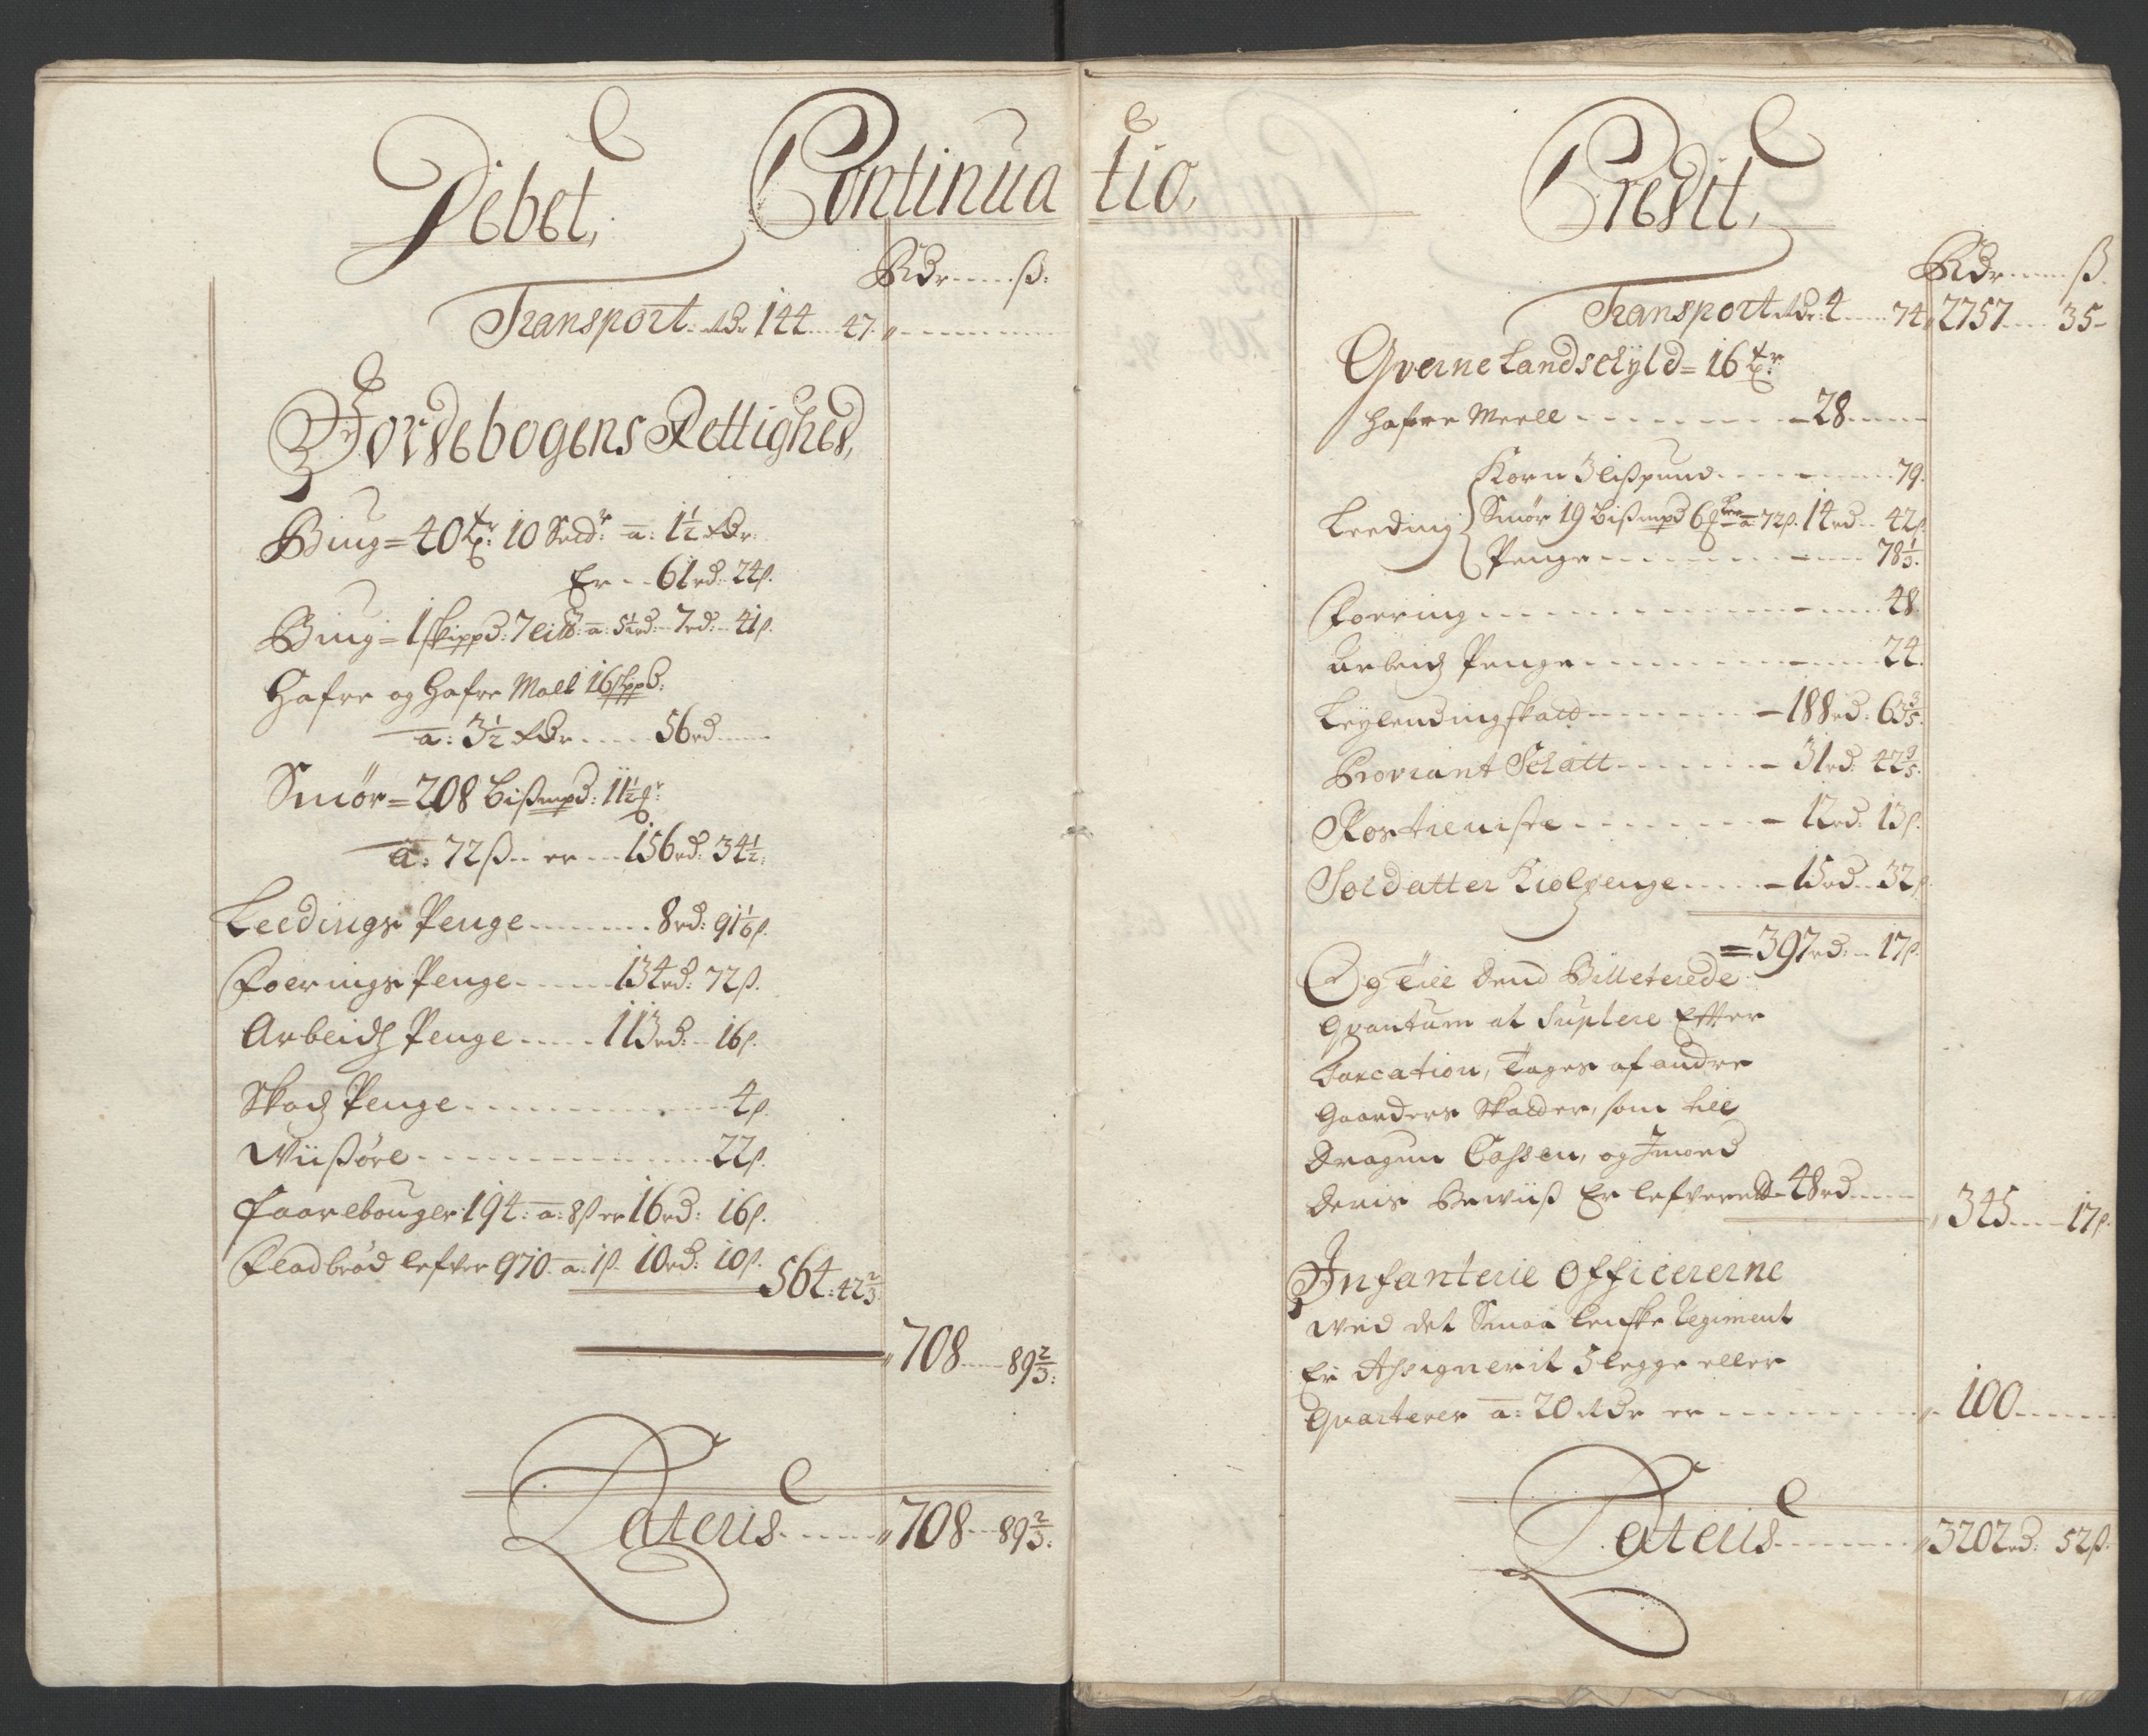 Debet, Continuatio,
Rdr ß:
Transport Rdr 144 47
Jordebogens Rettighed,
Biug = 40 tr: 10 Setd:r a: 1½ Rdr
Er 61rd: 24ß.
Biug = 1 skippd: 7 lis: a: 5½rd: 7rd: 41ß.
Hafre og Hafre Mall 16 skippd:
a: 3½ Rdr 56rd
Smør = 208 bißmpd: 11½
a: 72ß er 156rd: 34½:
Leedings Penge 8rd: 91⅙ß.
Foerings Penge 134rd: 72ß.
Arbeidz Penge 113rd: 16ß.
Skadz Penge 4ß.
Wiißøre 22ß.
Faarebouger 194: a: 8ß er 16rd: 16ß.
Fladbrød lefver 970 a: 1ß 10rd: 10ß.
564: 42⅔
708 89⅔:
Lateris 708 89⅔:
Credit,
Rdr ß.
Transport Rdr: 4 74 2757 35
Qverne Landschyld = 16 tr
Hafre Meell 28
Leeding
Korn 3 lißpund 79.
Smør 19 bißmpd 6 a: 72ß. 14rd 42ß.
Penge 78⅓.
Foering 48.
Arbeidz Penge 24.
Leylendingskatt 188rd: 63⅗.
Proviant Schatt 31rd: 42⁹⁄₅.
Rostieniste 12rd: 13ß.
Soldatter Kiolpenge 15rd 32ß.
= 397rd: 17ß.
Og Till dend Billeterede
Qvantum at Suplere Efter
Taxcation, Tages af andre
Gaarders Skatter, som till
Dragun Cassen, og Imod
deris Beviiß Er lefverett 48rd
345 17ß.
Infanterie Officererne
wed det Smaalenske Regiment
Er Assignerit 5 legge eller
Qvarterer a: 20 Rdr er 100
Lateris 3202rd: 52ß.